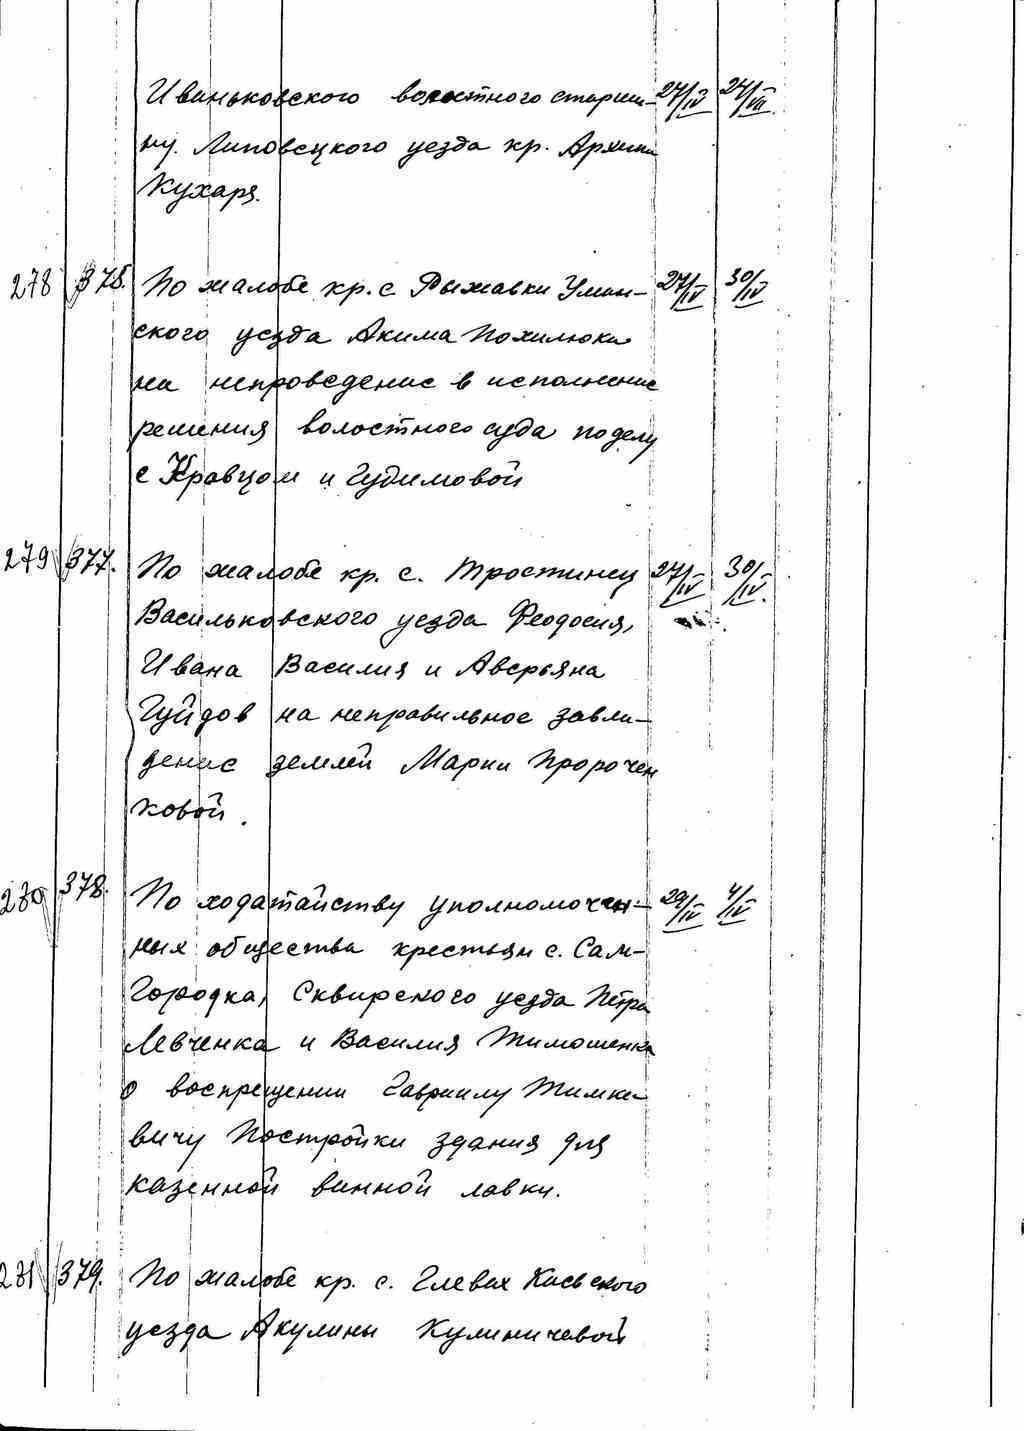 Иваньковского волостного старши- 27/IV 24/VII
ну. Липовецкого уезда кр. Архипа
Кухаря.
278 375. По жалобе кр. с Рыжавки Уман- 27/IV 30/IV
ского уезда Акима Похилюка
на непроведение в исполнение
решения волостного суда по делу
с Кравцом и Гудимовой
279 377. По жалобе кр. с. Тростинец 27/IV 30/IV.
Васильковского уезда Феодосия,
Ивана Василия и Аверьяна
Гуйдов на неправильное завла-
дение землей Марии Пророчен
ковой.
280 378. По ходатайству уполномочен- 29/IV 4/IV
ных общества крестьян с. Сам-
Городка, Сквирского уезда Петра
Левченка и Василия Тимошенка
о воспрещении Гавриилу Тимке-
вичу Постройки здания для
казенной винной лавки.
281 379. По жалобе кр. с. Глевах Киевского
уезда Акулины Кулиничевой